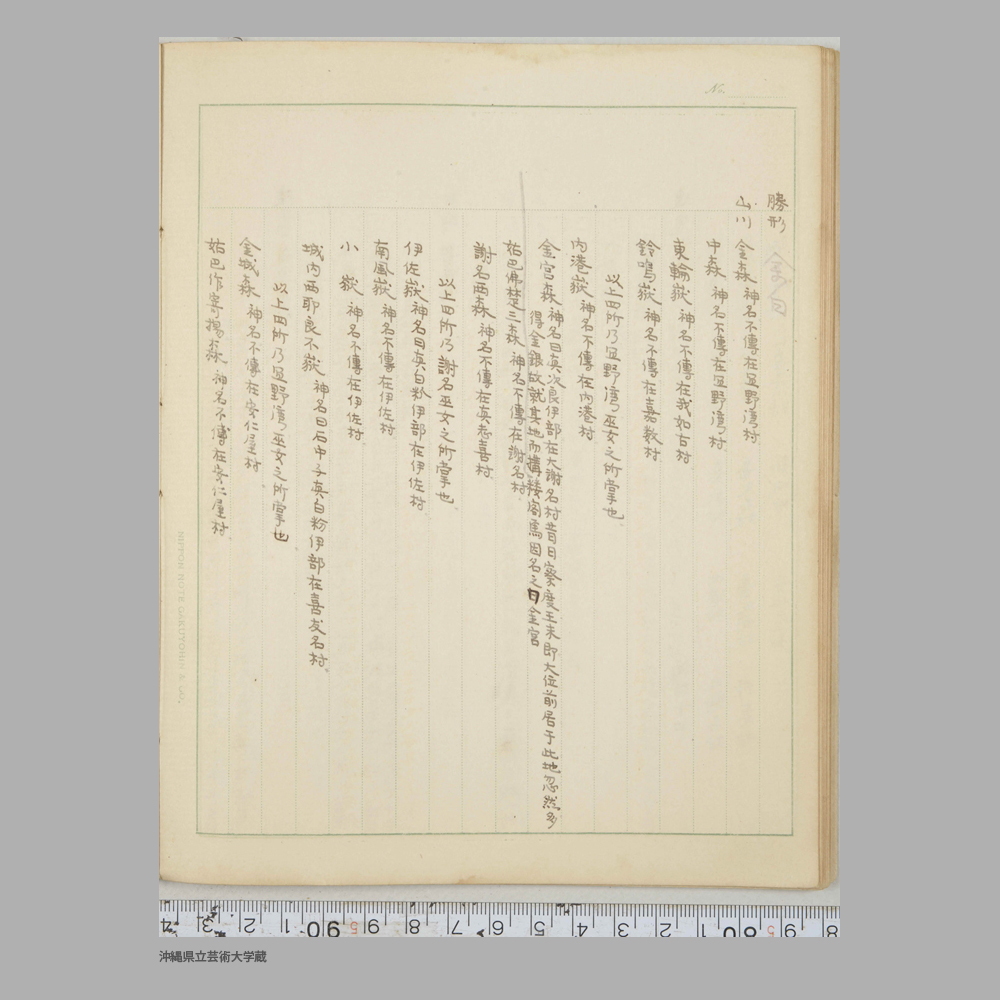 No.
勝形
山川
金森 神名不傳在宜野湾村
中森 神名不傳在宜野湾村
東輪嶽 神名不傳在我如古村
鈴鳴嶽 神名不傳在嘉数村
以上四所乃宜野湾巫女之所掌也
内港嶽 神名不傳在内港村
金宮森 神名曰真次良伊部在大謝名村昔日察度王未即大位前居于此地忽然多
得金銀故就其地而構楼閣焉因名之曰金宮
姑巴佛楚三森 神名不傳在謝名村
謝名西森 神名不傳在真志喜村
以上四所乃謝名巫女之所掌也
伊佐嶽 神名曰真白粉伊部在伊佐村
南風嶽 神名不傳在伊佐村
小嶽 神名不傳在伊佐村
城内西耶良不嶽 神名曰石中子真白粉伊部在喜友名村
以上四所乃宜野湾巫女之所掌也
金城森 神名不傳在安仁屋村
姑巴作寄揚森 神名不傳在安仁屋村
4 3 2 1 90 9 8 7 6 5 4 3 2 1 80 9 8
沖縄県立芸術大学蔵